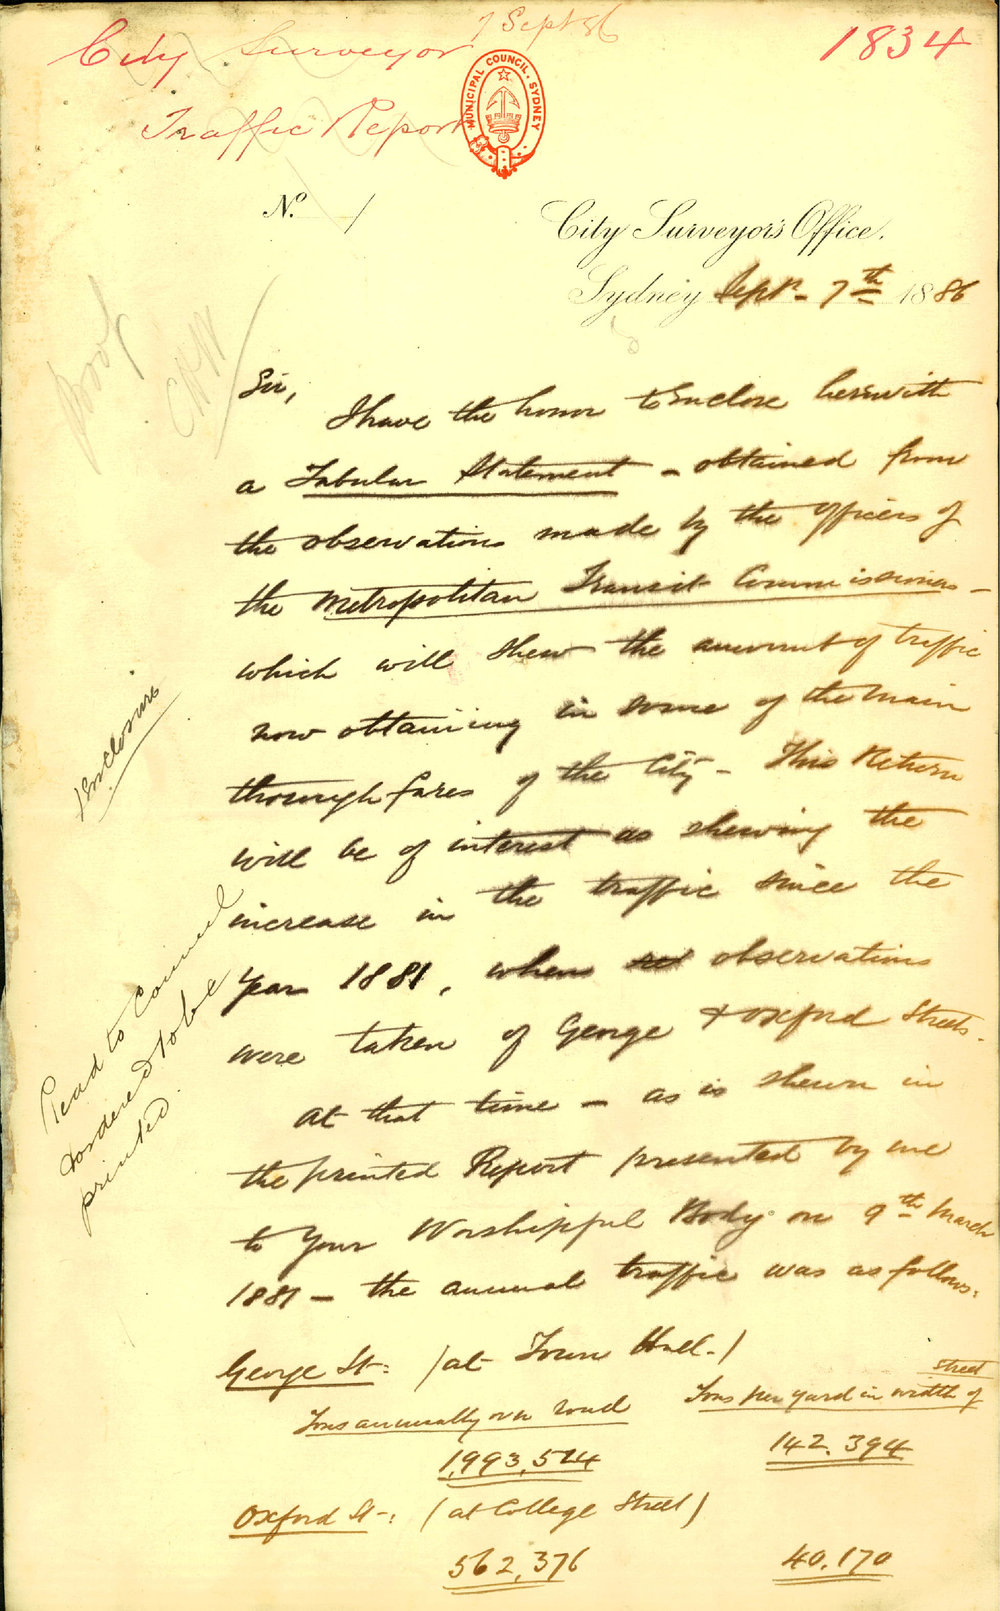 7 Sept 86
City Surveyor
1834
MUNICIPAL COUNCIL. SYDNEY
Traffic Report
No. 1
City Surveyor's Office.
Sydney Sept. 7th 1886
Sir,
I have the honor to Enclose herewith
a Tabular Statement - obtained from
the observations made by the Officers of
the Metropolitan Transit Commissioners -
which will shew the amount of traffic
now obtaining in some of the main
thoroughfares of the City - This Return
will be of interest as shewing the
increase in the traffic since the
Year 1881, when observations
were taken of George & Oxford Streets.
At that time - as is shewn in
the printed Report presented by me
to Your Worshipful Body on 9th March
1881 - the annual traffic was as follows:
George St: (at Town Hall.)
Tons annually over road
Tons per yard in width of street
1,993,524
142.394
Oxford St-: (at College Street)
562,376
40,170
1 Enclosure
Read to Council
& ordered to be
printed.